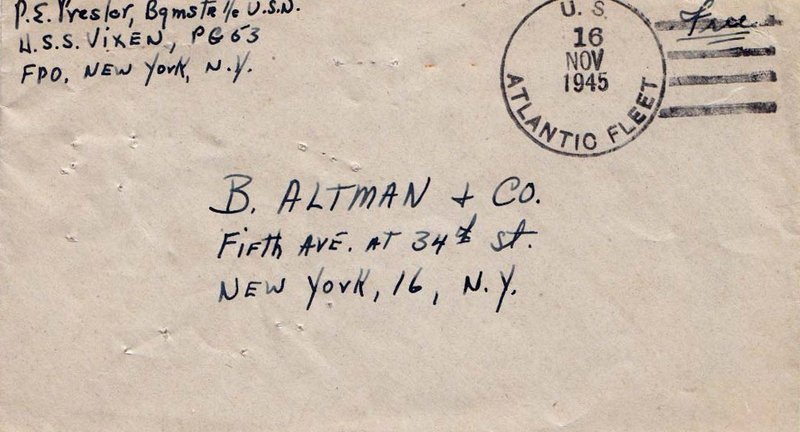 P.E. Presler, Bgmstr 1/c U.S.N.
U.S.S. Vixen, PG 53
FPO, New York, N.Y.
U. S.
16
NOV
1945
ATLANTIC FLEET
Free
B. ALTMAN & Co.
Fifth AVE. AT 34th St.
NEW York, 16, N.Y.